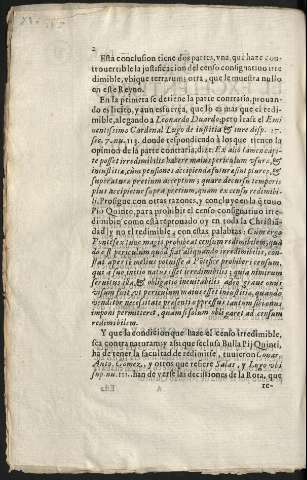 2
Esta conclusion tiene dos partes, vna, que haze con-
trouertible la justificacion del censo consignatiuo irre
dimible, vbique terrarum; otra, que le muestra nullo
en este Reyno.
En la primera se detiene la parte contraria, prouan-
do es licito, y aun esfuerça, que lo es mas que el redi-
mible, alegando à Leonardo Duardo, pero lease el Emi
nentissimo Cardenal Lugo de iustitia & iure disp. 27.
sec. 7. nu. 113. donde respondiendo à los que tienen la
opinion de la parte contraria, dize: Ex alio
posset irredimibilis habere maius periculum vsurae, &
iniustitiae, cum pensiones accipiendae
supra totum pretium acceptum; quare decursu temporis
plus accipietur supra pretium, quam ex censu redimibi-
li. Prosigue con otras razones, y concluye en q̃ tuuo
Pio Quinto, para prohibir el censo consignatiuo irre-
dimible como està reprouado oy en toda la Christian-
dad, y no el redimible, con estas palabras: Cum ergo
Pontifex nunc magis prohibeat censum redimibilem; quā
do est periculum quòd fiat aliquando irredimibilis, con-
stat aperte melius potuisse à Pōtifice prohiberi censum,
qui à suo initio natus esset irredimibilis; quia nimirum
seruitus illa, & obligatio ineuitabilis adeò graue onus
visum fuit, vt periculum maius esset iniustitiae, quando
venditor necessitate praesentis pressus tantum sibi onus
imponi permitteret, quàm si solum obligaret ad censum
redimibilem.
Y que la condicion que haze el censo irredimible,
sea contra naturam; y assi que seclusa Bulla Pij Quinti,
ha de tener la facultad de redimirse, tuuieron Couar.
Anto. Gomez, y otros que refiere Salas, y Lugo vbi
sup. nu. 111. han de verse las decissiones de la Rota, que
A
re-